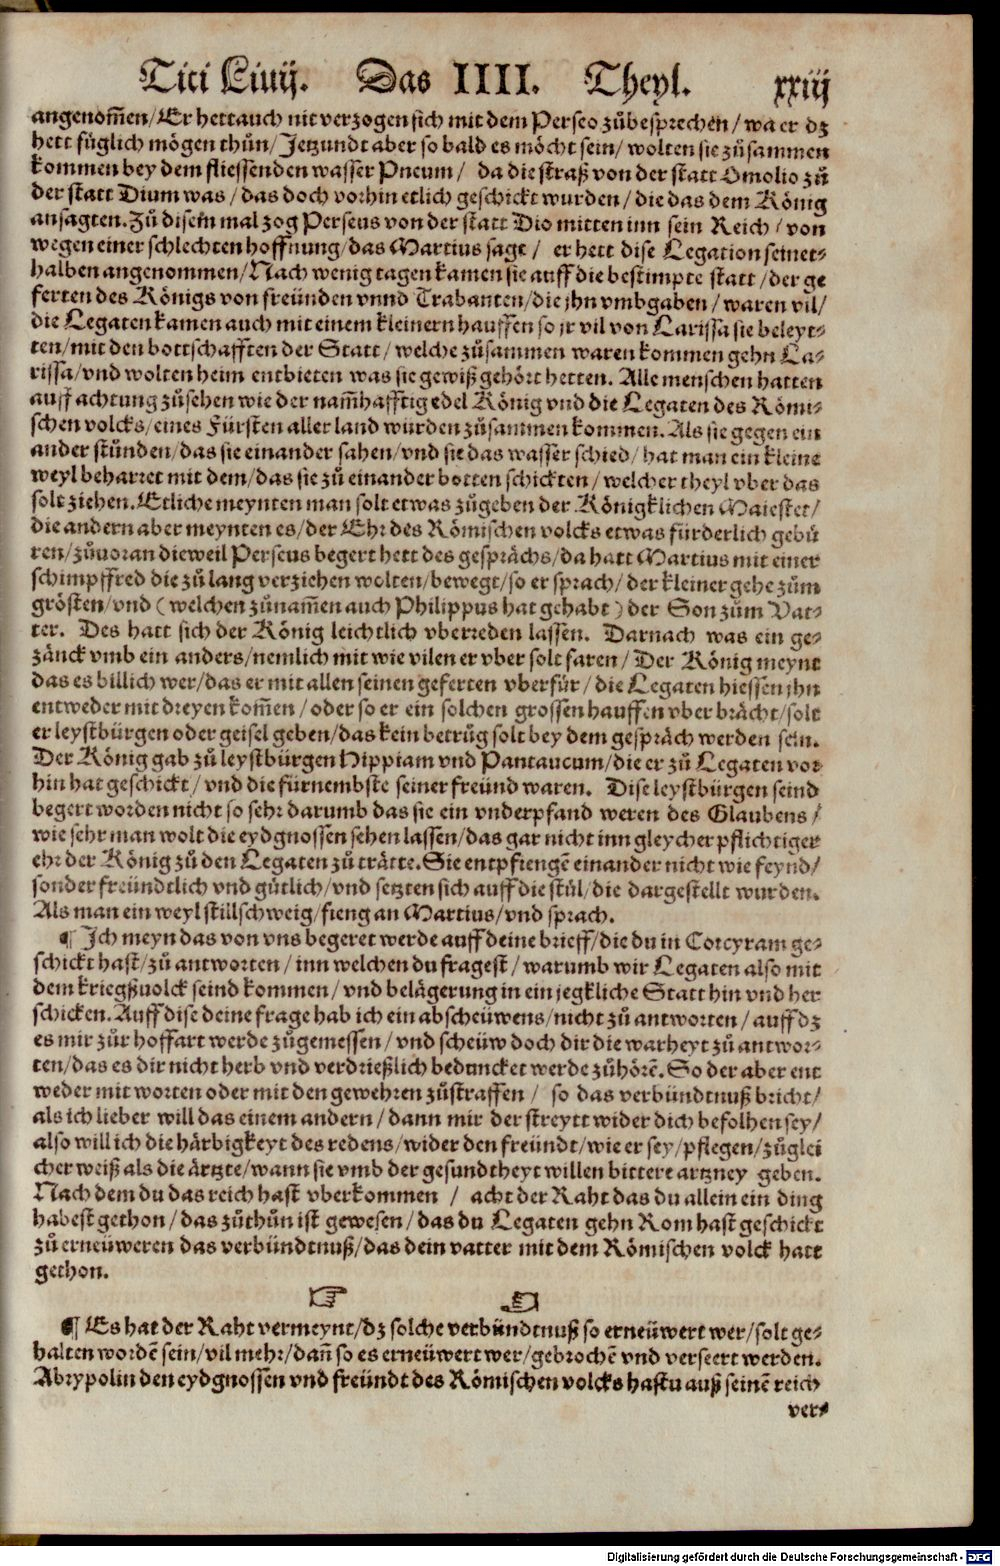 Titi Liuij. Das IIII. Theyl. xxiij
angenom̃en/Er hett auch nit verzogen sich mit dem Perseo zůbesprechen/wa er dz
hett füglich mögen thůn/Jetzundt aber so bald es möcht sein/wolten sie zůsammen
kommen bey dem fliessenden wasser Pneum/ da die straß von der statt Omolio zů
der statt Dium was/das doch vorhin etlich geschickt wurden/die das dem König
ansagten. Zů disem mal zog Perseus von der statt Dio mitten inn sein Reich/von
wegen einer schlechten hoffnung/das Martius sagt/ er hett dise Legation seinet-
halben angenommen/Nach wenig tagen kamen sie auff die bestimpte statt/der ge
ferten des Königs von freünden vnnd Trabanten/die jhn vmbgaben/waren vil/
die Legaten kamen auch mit einem kleinern hauffen so jr vil von Larissa sie beleyt-
ten/mit den bottschafften der Statt/welche zůsammen waren kommen gehn La-
rissa/vnd wolten heim entbieten was sie gewiß gehört hetten. Alle menschen hatten
auff achtung zůsehen wie der nam̃hafftig edel König vnd die Legaten des Römi-
schen volcks/eines Fürsten aller land wurden zůsammen kommen. Als sie gegen ein
ander stůnden/das sie einander sahen/vnd sie das wasser schied/hat man ein kleine
weyl beharret mit dem/das sie zů einander botten schickten/welcher theyl vber das
solt ziehen. Etliche meynten man solt etwas zůgeben der Königklichen Maiestet/
die andern aber meynten es/der Ehr des Römischen volcks etwas fürderlich gebü
ren/zůuoran dieweil Perseus begert hett des gesprächs/da hatt Martius mit einer
schimpffred die zů lang verziehen wolten/bewegt/so er sprach/der kleiner gehe zům
grösten/vnd (welchen zůnam̃en auch Philippus hat gehabt) der Son zům Vat-
ter. Des hatt sich der König leichtlich vberreden lassen. Darnach was ein ge-
zänck vmb ein anders/nemlich mit wie vilen er vber solt faren/Der König meynt
das es billich wer/das er mit allen seinen geferten vberfür/die Legaten hiessen jhn
entweder mit dreyen kom̃en/oder so er ein solchen grossen hauffen vber brächt/solt
er leystbürgen oder geisel geben/das kein betrůg solt bey dem gespräch werden sein.
Der König gab zů leystbürgen Hippiam vnd Pantaucum/die er zů Legaten vor
hin hat geschickt/vnd die fürnembste seiner freünd waren. Dise leystbürgen seind
begert worden nicht so sehr darumb das sie ein vnderpfand weren des Glaubens/
wie sehr man wolt die eydgnossen sehen lassen/das gar nicht inn gleycher pflichtiger
ehr der König zů den Legaten zů trätte. Sie entpfiengē einander nicht wie feynd/
sonder freündtlich vnd gůtlich/vnd setzten sich auff die stůl/die dargestellt wurden.
Als man ein weyl stillschweig/fieng an Martius/vnd sprach.
¶ Ich meyn das von vns begeret werde auff deine brieff/die du in Corcyram ge-
schickt hast/zů antworten/inn welchen du fragest/warumb wir Legaten also mit
dem kriegßuolck seind kommen/vnd belägerung in ein jegkliche Statt hin vnd her
schicken. Auff dise deine frage hab ich ein abscheüwens/nicht zů antworten/auff dz
es mir zůr hoffart werde zůgemessen/vnd scheüw doch dir die warheyt zů antwor-
ten/das es dir nicht herb vnd verdrießlich beduncket werde zůhörē. So der aber ent
weder mit worten oder mit den gewehren zůstraffen/ so das verbündtnuß bricht/
als ich lieber will das einem andern/dann mir der streytt wider dich befolhen sey/
also will ich die härbigkeyt des redens/wider den freündt/wie er sey/pflegen/zůglei
cher weiß als die ärtzte/wann sie vmb der gesundtheyt willen bittere artzney geben.
Nach dem du das reich hast vberkommen/ acht der Raht das du allein ein ding
habest gethon/das zůthůn ist gewesen/das du Legaten gehn Rom hast geschickt
zů erneüweren das verbündtnuß/das dein vatter mit dem Römischen volck hatt
gethon.
☞ ☜
¶ Es hat der Raht vermeynt/dz solche verbündtnuß so erneüwert wer/solt ge-
halten wordē sein/vil mehr/dañ so es erneüwert wer/gebrochē vnd verseert werden.
Abrypolin den eydgnossen vnd freündt des Römischen volcks hastu auß seinē reich
ver-
Digitalisierung gefördert durch die Deutsche Forschungsgemeinschaft - DFG